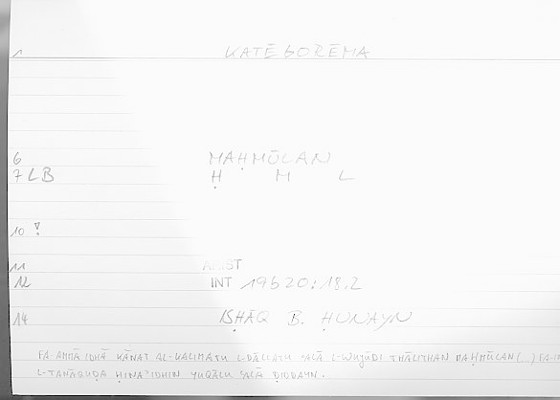 1 KATĒGORĒMA
6 MAḤMŪLAN
7 LB Ḥ M L
10 ?
11 ARIST
12 INT 19b20; 18.2
14 ISḤĀQ B. ḤUNAYN
FA-AMMĀ IDHĀ KĀNAT AL-KALIMATU L-DĀLLATU ʿALĀ L-WUJŪDI THĀLITHAN MAḤMŪLAN (...) FA-
L-TANĀQUḌA ḤĪNAʾIDHIN YUQĀLU ʿALĀ ḌIDDAYN.